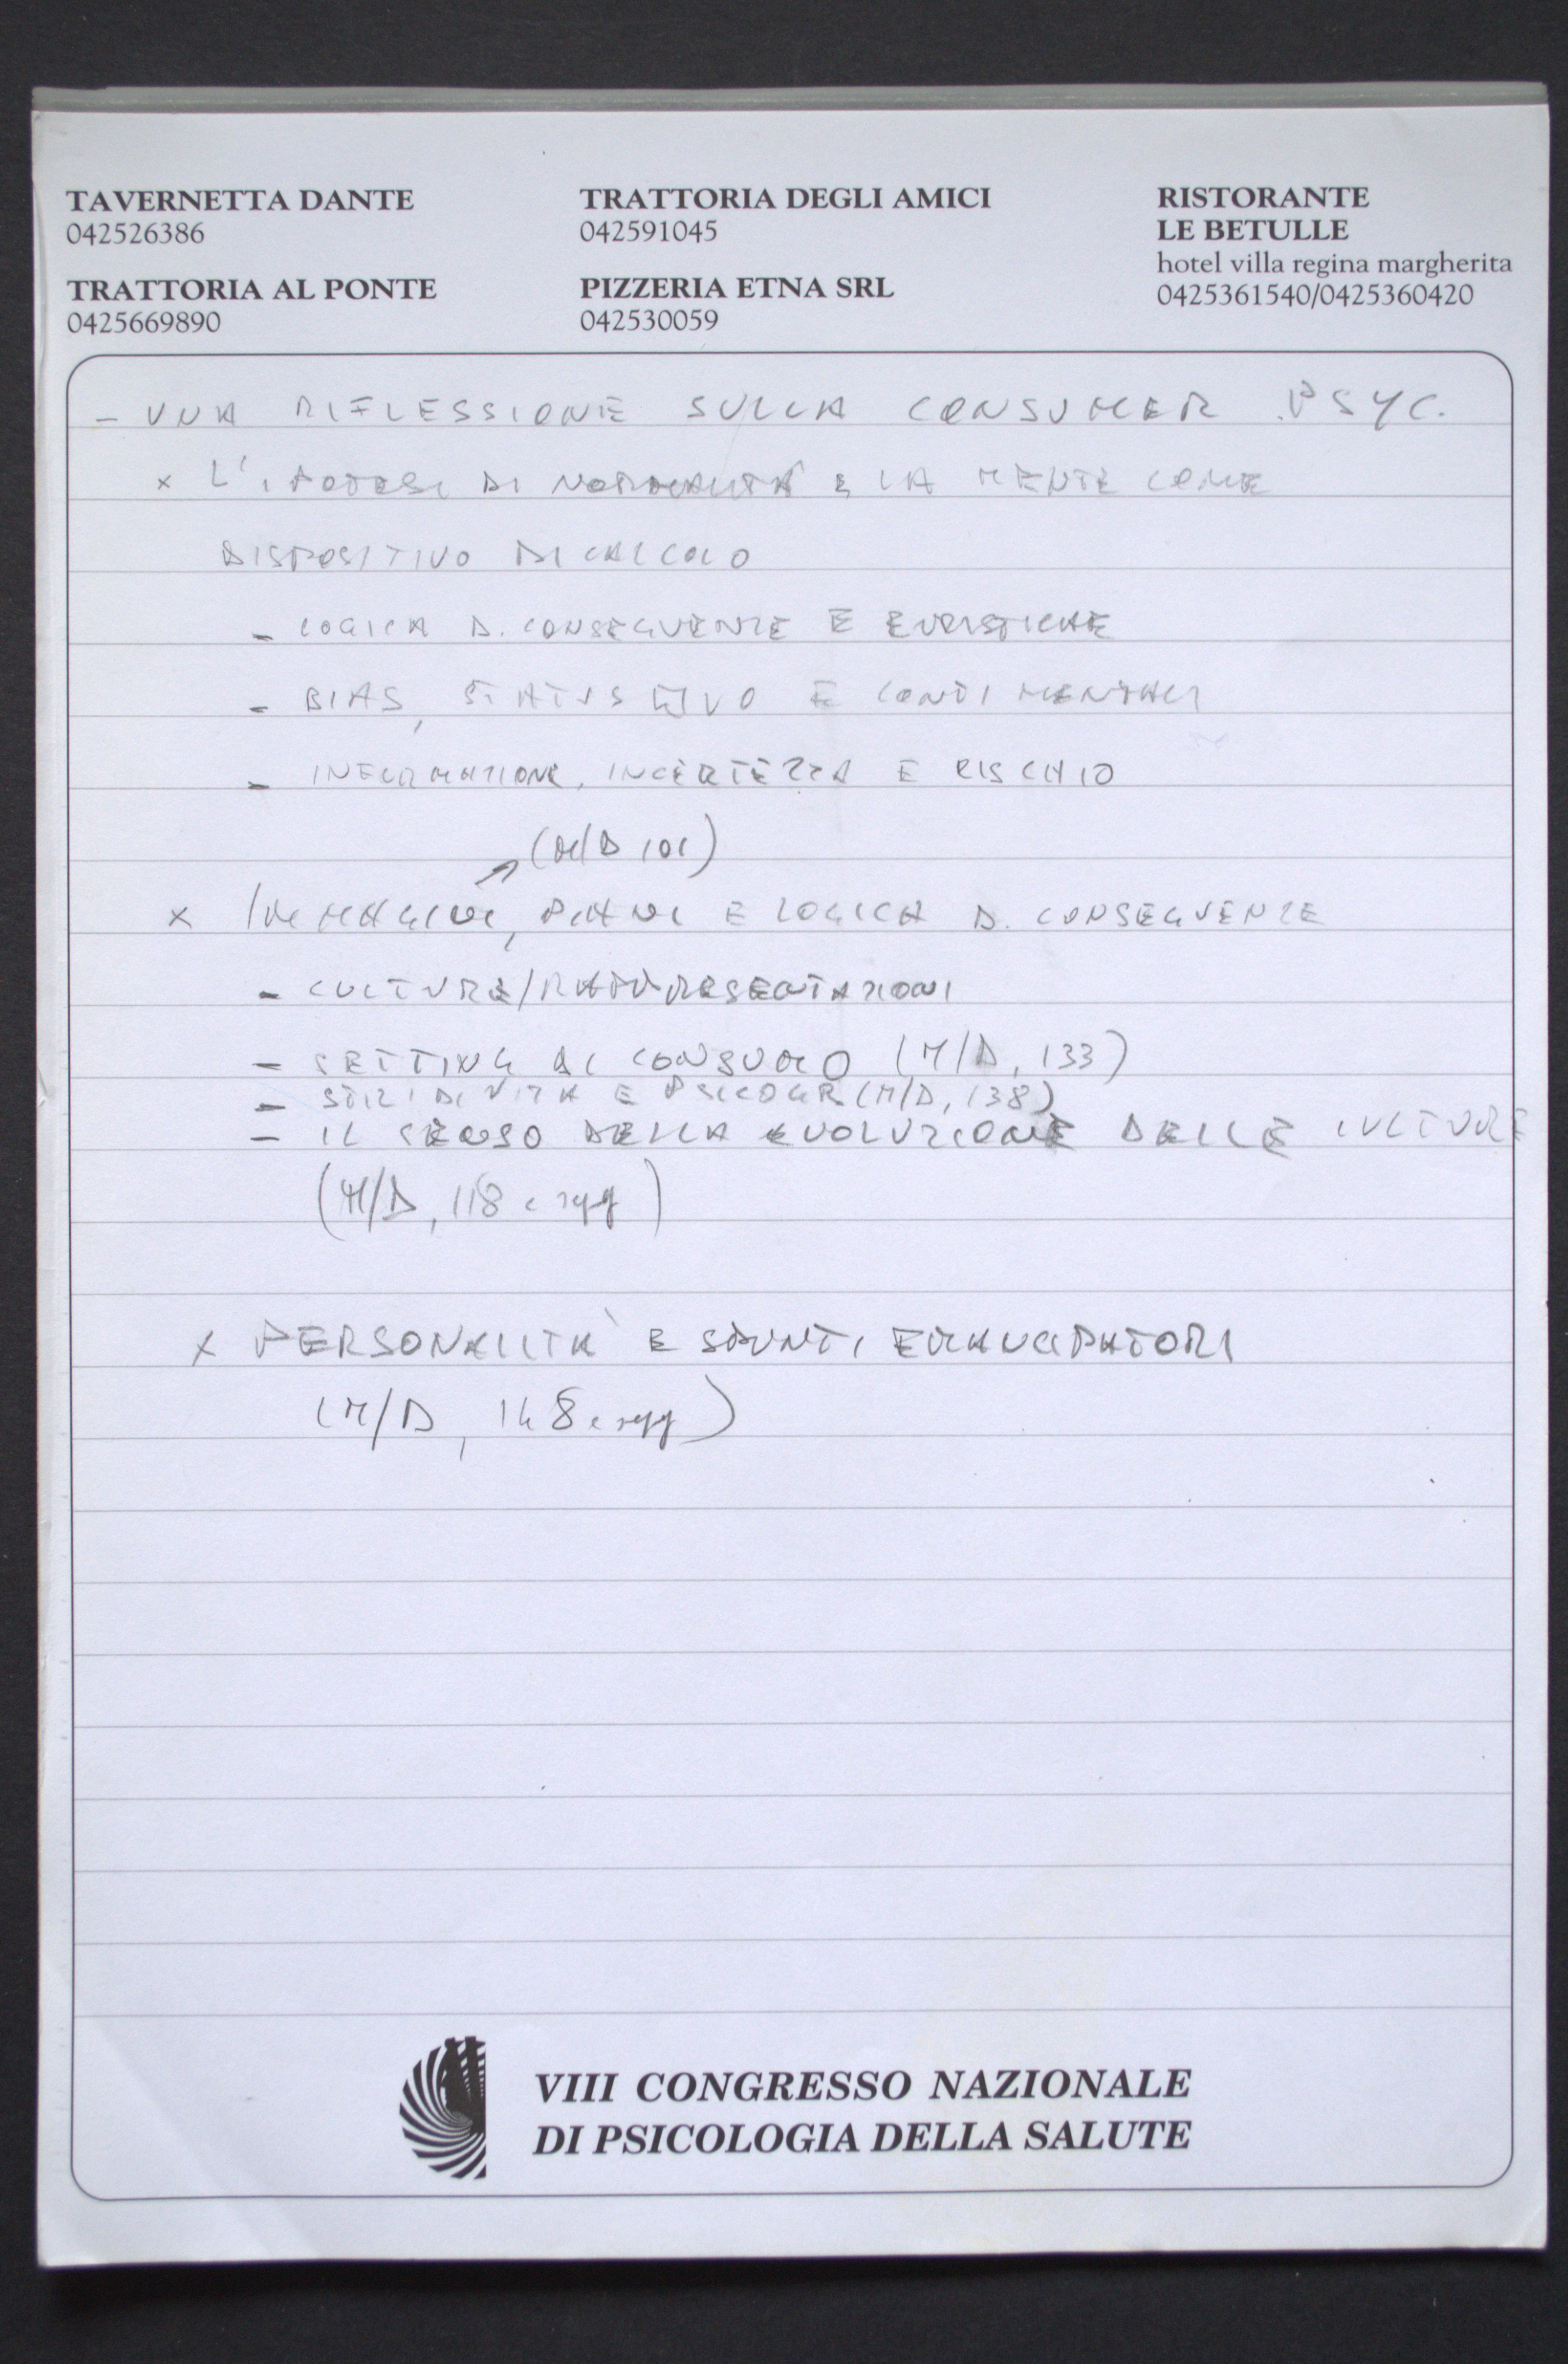 TAVERNETTA DANTE
042526386
TRATTORIA AL PONTE
0425669890
TRATTORIA DEGLI AMICI
042591045
PIZZERIA ETNA SRL
042530059
RISTORANTE
LE BETULLE
hotel villa regina margherita
0425361540/0425360420
- UNA RIFLESSIONE SULLA CONSUMER PSYC.
x L'IPOTESI DI NORMALITÀ E LA MENTE COME
DISPOSITIVO DI CALCOLO
- LOGICA D. CONSEGUENZE E EURISTICHE
- BIAS, STATUS QUO E CONTI MENTALI
- INFORMAZIONE, INCERTEZZA E RISCHIO
(M/D 101)
x IMMAGINI, PIANI E LOGICA D. CONSEGUENZE
- CULTURE/RAPPRESENTAZIONI
- SETTING DI CONSUMO (M/D, 133)
- STILI DI VITA E PSICOGR. (M/D, 138)
- IL SENSO DELLA EVOLUZIONE DELLE CULTURE
(M/D, 118 e sgg)
x PERSONALITA' E SPUNTI EMANCIPATORI
(M/D, 148 e sgg)
VIII CONGRESSO NAZIONALE
DI PSICOLOGIA DELLA SALUTE